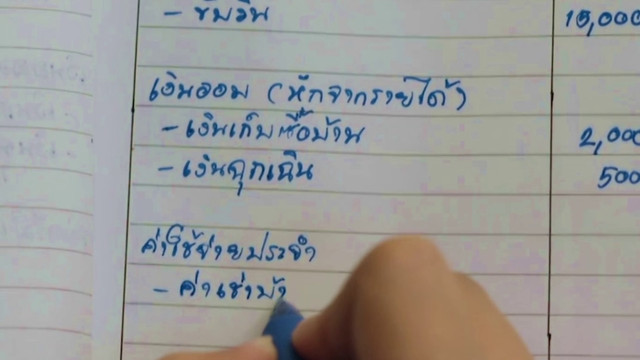 - ขับวิน 15,000
เงินออม (หักจากรายได้)
- เงินเก็บซื้อบ้าน 2,000
- เงินฉุกเฉิน 500
ค่าใช้จ่ายประจำ
- ค่าเช่าบ้า